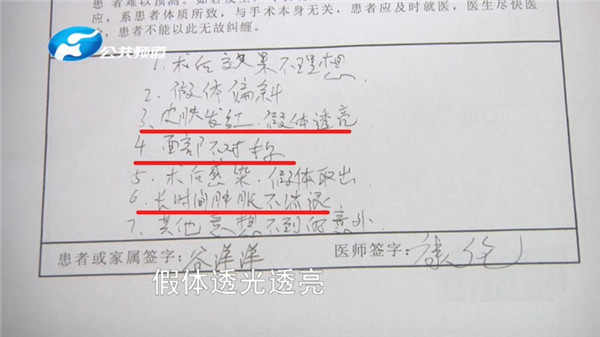 患者难以预测。如若发生
应，系患者体质所致，与手术本身无关，患者应及时就医，医生尽快医
应，患者不能以此无故纠缠。
公共频道
1. 术后效果不理想
2. 假体偏斜
3. 皮肤发红.假体透亮
4. 面部不对称
5. 术后感染.假体取出
6. 长时间肿胀不消退
7. 其他意想不到的意外
患者或家属签字：谷洋洋
医师签字：
假体透光透亮